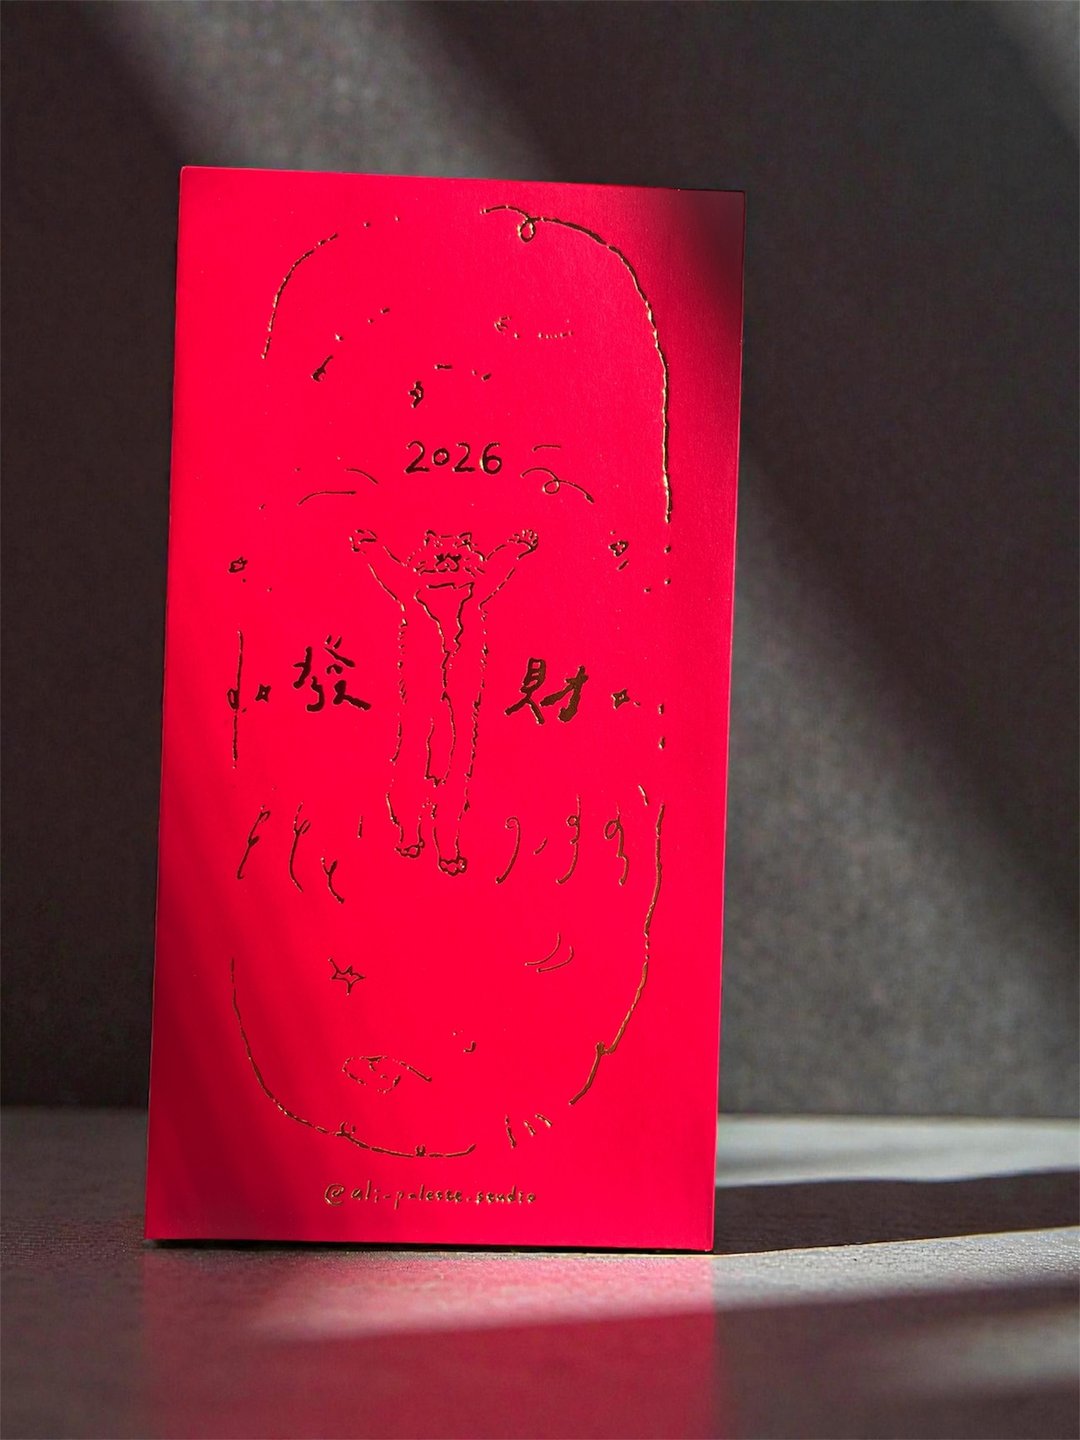 2026
發財
@ali_palette.studio